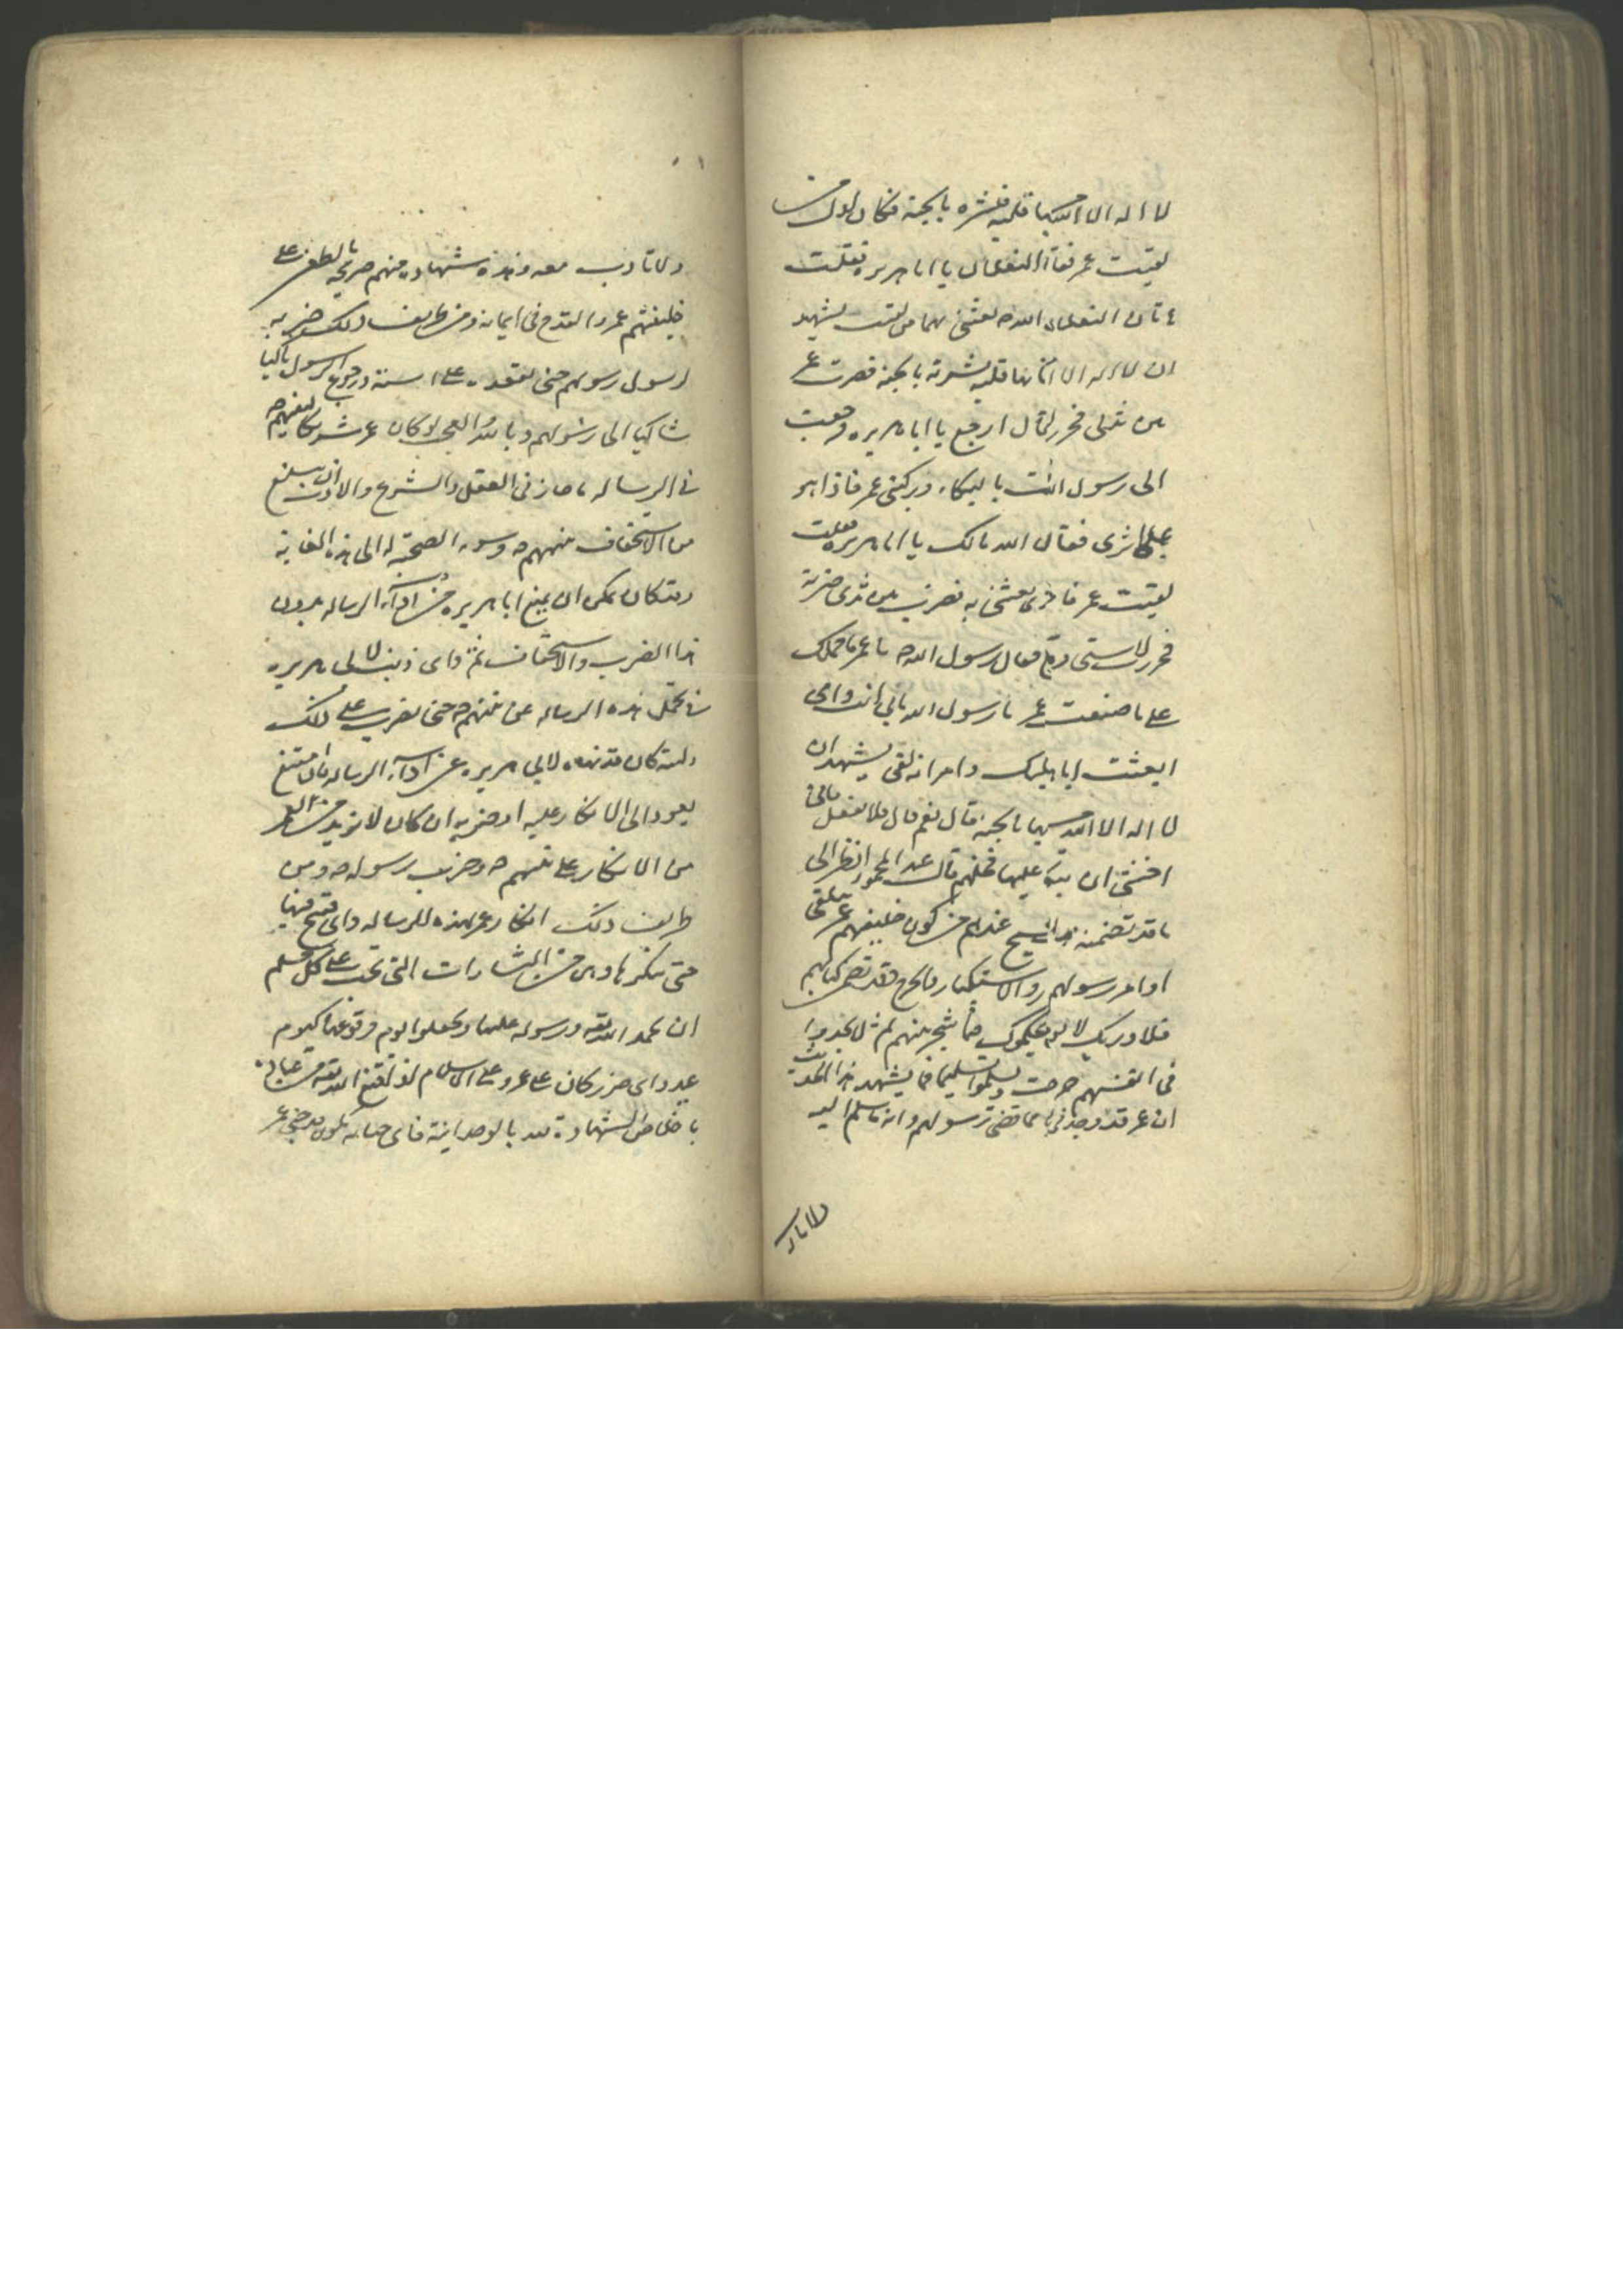 لا اله الا الله مستيقنا بها قلبه فبشره بالجنة فكان اول من
لقيت عمر فقال ما هاتان النعلان يا ابا هريره فقلت
هاتان النعلان رسول الله ص بعثنى بهما من لقيت يشهد
ان لا اله الا الله مستيقنا بها قلبه بشرته بالجنة فضرب عمر
بين ثديى فخررت فقال ارجع يا ابا هريره فرجعت
الى رسول الله بالبكاء وركبنى عمر فاذا هو
على اثرى فقال الله مالك يا ابا هريره فقلت
لقيت عمر فاخبرته بعثتنى به فضرب بين ثديى ضربة
فخررت لاستى فقال رسول الله ص يا عمر ما حملك
على ما صنعت عمر يا رسول الله بابى انت وامى
ابعثت ابا هريره وامرته لقى يشهد ان
لا اله الا الله بالجنة قال نعم قال فلا تفعل فانى
اخشى ان عليها فخلهم قال عبد المحمود انظر الى
ما قد تضمنه من كون خليفهم عمر يلقى
اوامر رسولهم والاستكبار وقد تضمن كتابهم
فلا وربك لا يؤمنون حتى يحكموك فيما شجر بينهم ثم لا يجدوا
فى انفسهم حرجا ويسلموا تسليما فيشهد هذا الحديث
ان عمر قد وجد حرجا مما قضى رسولهم وانه ما سلم اليه
ولا تادب
ولا تادب معه وهذه شهاده منهم صريحه بالطعن على
خليفتهم عمر والقدح فى ايمانه ومن طريف ذلك ضربه
لرسول رسولهم حتى يقعد على استه ورجوع الرسول باكيا
شاكيا الى رسولهم وبالله العجب لو كان عمر شريكا لنبيهم ص
فى الرساله ما جاز فى العقل والشرع والادب ان يبلغ
من الاستخفاف بنبيهم ص وسوء الصحبة له الى هذه الغاية
وقد كان يمكن ان يمنع ابا هريره من اداء الرساله بدون
هذا الضرب والاستخفاف ثم واى ذنب لابى هريره
فى تحمل هذه الرساله عن نبيهم ص حتى يضرب على ذلك
وليته كان قد نهى لابى هريره عن اداء الرساله فان امتنع
يعود الى الانكار عليه او ضربه ان كان لا بد من
من الانكار على نبيهم ص وضرب رسوله ص ومن
طريف ذلك انكار عمر لهذه الرساله واى قبح فيها
حتى ينكرها وهى من البشارات التى تجب على كل مسلم
ان يحمد الله تعالى ورسوله عليها ويجعلوا يوم وقوعها كيوم
عيد واى ضرر كان على عمر وعلى الاسلام لو يقنع الله تعالى من عباده
باخلاص الشهادة لله بالوحدانية فاى